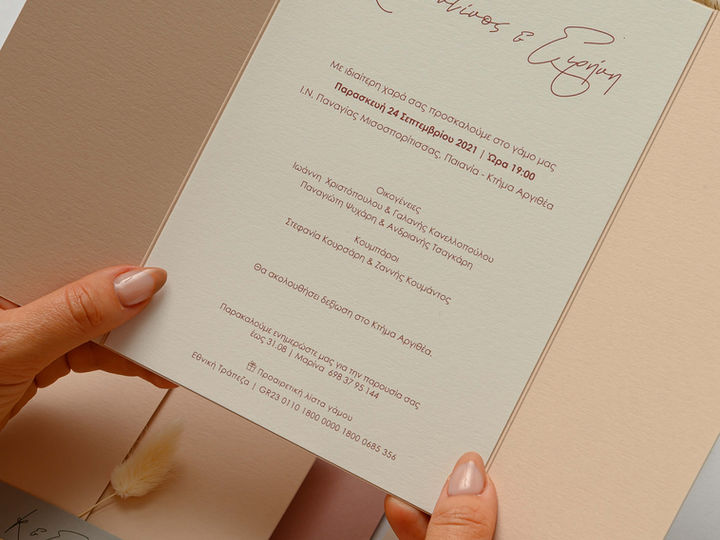 & Ειρήνη
Με ιδιαίτερη χαρά σας προσκαλούμε στο γάμο μας
Παρασκευή 24 Σεπτεμβρίου 2021 | Ώρα 19:00
Ι.Ν. Παναγίας Μισοσπορίτισσας, Παιανία - Κτήμα Αργιθέα
Οικογένειες
Ιωάννη Χριστόπουλου & Γαλανής Κανελλοπούλου
Παναγιώτη Ψυχάρη & Ανδριανής Τσαγκάρη
Κουμπάροι
Στεφανία Κουρσάρη & Ζαννής Κουμάντος
Θα ακολουθήσει δεξίωση στο Κτήμα Αργιθέα.
Παρακαλούμε ενημερώστε μας για την παρουσία σας
έως 31.08 | Μαρίνα 698 37 95 144
Προαιρετική λίστα γάμου
Εθνική Τράπεζα | GR23 0110 1800 0000 1800 0685 356
K & Σ